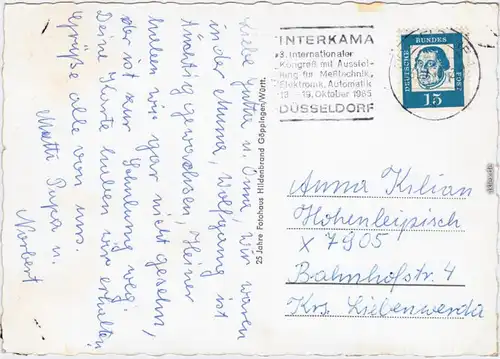 Liebe Jutta u. Oma, Wir waren
in der Muna, Wolfgang ist
tüchtig gewachsen, Heiner
haben wir gar nicht gesehn,
der ist zur Schulung weg.
Deine Karte haben wir erhalten
Grüße alle von uns.
Mutti Papa u.
Norbert
25 Jahre Fotohaus Hildenbrand Göppingen/Württ.
INTERKAMA
3. Internationaler
Kongreß mit Ausstel-
lung für Meßtechnik,
Elektronik, Automatik
13 - 19. Oktober 1965
DÜSSELDORF
DEUTSCHE
BUNDES
POST
15
Anna Kilian
Hohenleipisch
X 7905
Bahnhofstr. 4
Krs. Liebenwerda